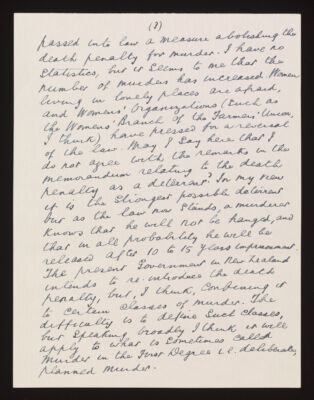 (3)
passed into law a measure abolishing the
death penalty for murder. I have no
statistics, but it seems to me that the
number of murders has increased. Women
living in lonely places are afraid,
and Womens' Organizations (such as
the Womens' Branch of the Farmers' Union,
I think) have pressed for a reversal
of the law. May I say here that I
do not agree with the remarks in the
memorandum relating to the death
penalty as a deterrent? In my view
it is the strongest possible deterrent
but as the law now stands, a murderer
knows that he will not be hanged, and
that in all probability he will be
released after 10 to 15 years imprisonment.
The present Government in New Zealand
intends to re-introduce the death
penalty, but, I think, confining it
to certain classes of murder. The
difficulty is to define such classes,
but speaking broadly I think it will
apply to what is sometimes called
Murder in the First Degree i.e. deliberately
planned murder.